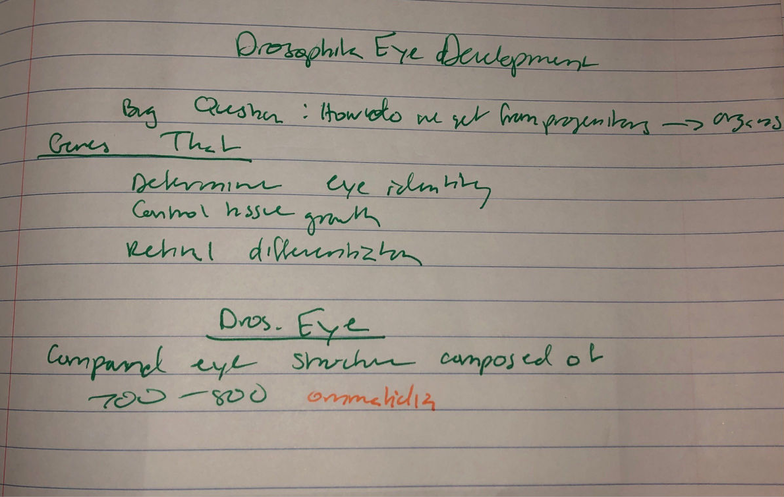 Drosophila Eye Development
Big Question : How do we get from progenitors → organs
Genes That
Determine eye identity
Control tissue growth
Retinal differentiation
Dros. Eye
Compound eye structure composed of
700 - 800 ommatidia